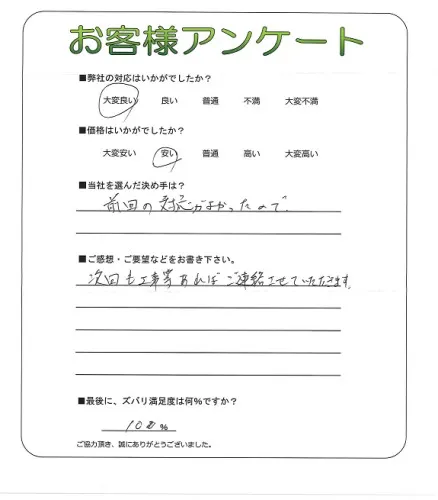 お客様アンケート
■弊社の対応はいかがでしたか?
大変良い 良い 普通 不満 大変不満
■価格はいかがでしたか?
大変安い 安い 普通 高い 大変高い
■当社を選んだ決め手は?
前回の対応がよかったので.
■ご感想・ご要望などをお書き下さい。
次回も工事等あればご連絡させていただきます.
■最後に、ズバリ満足度は何%ですか?
100%
ご協力頂き、誠にありがとうございました。